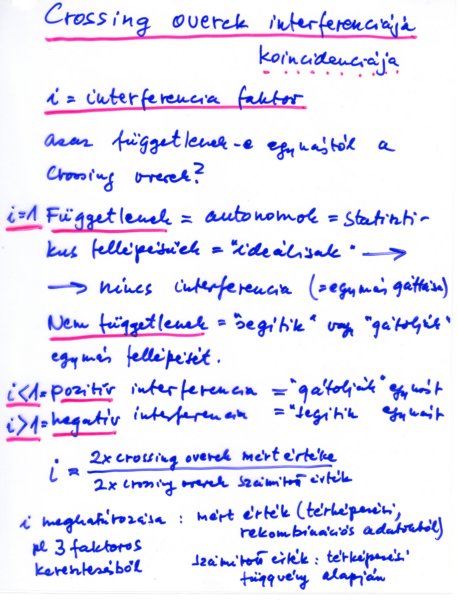 Crossing overek interferenciája
koincidenciája
i = interferencia faktor
azaz függetlenek-e egymástól a
Crossing overek?
i=1 Függetlenek = autonomok = statiszti-
kus fellépésűek = "ideálisak" →
→ nincs interferencia (=egymás gátlása)
Nem függetlenek = "segítik" vagy "gátolják"
egymás fellépését.
i<1= pozitív interferencia = "gátolják" egymást
i>1= negatív interferencia = "segítik egymást
i = 2x crossing overek mért értéke
2x crossing overek számított érték
i meghatározása : mért érték (térképezési,
rekombinációs adatokból)
pl 3 faktoros
keresztezésből
számított érték : térképezési
függvény alapján